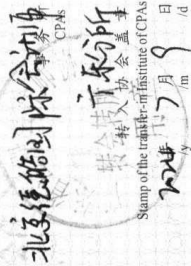 北京德皓国际会计师
事务所
CPAs
分所
转入协会盖章
Stamp of the transfer-in Institute of CPAs
2024年 7月 9日
/y /m /d